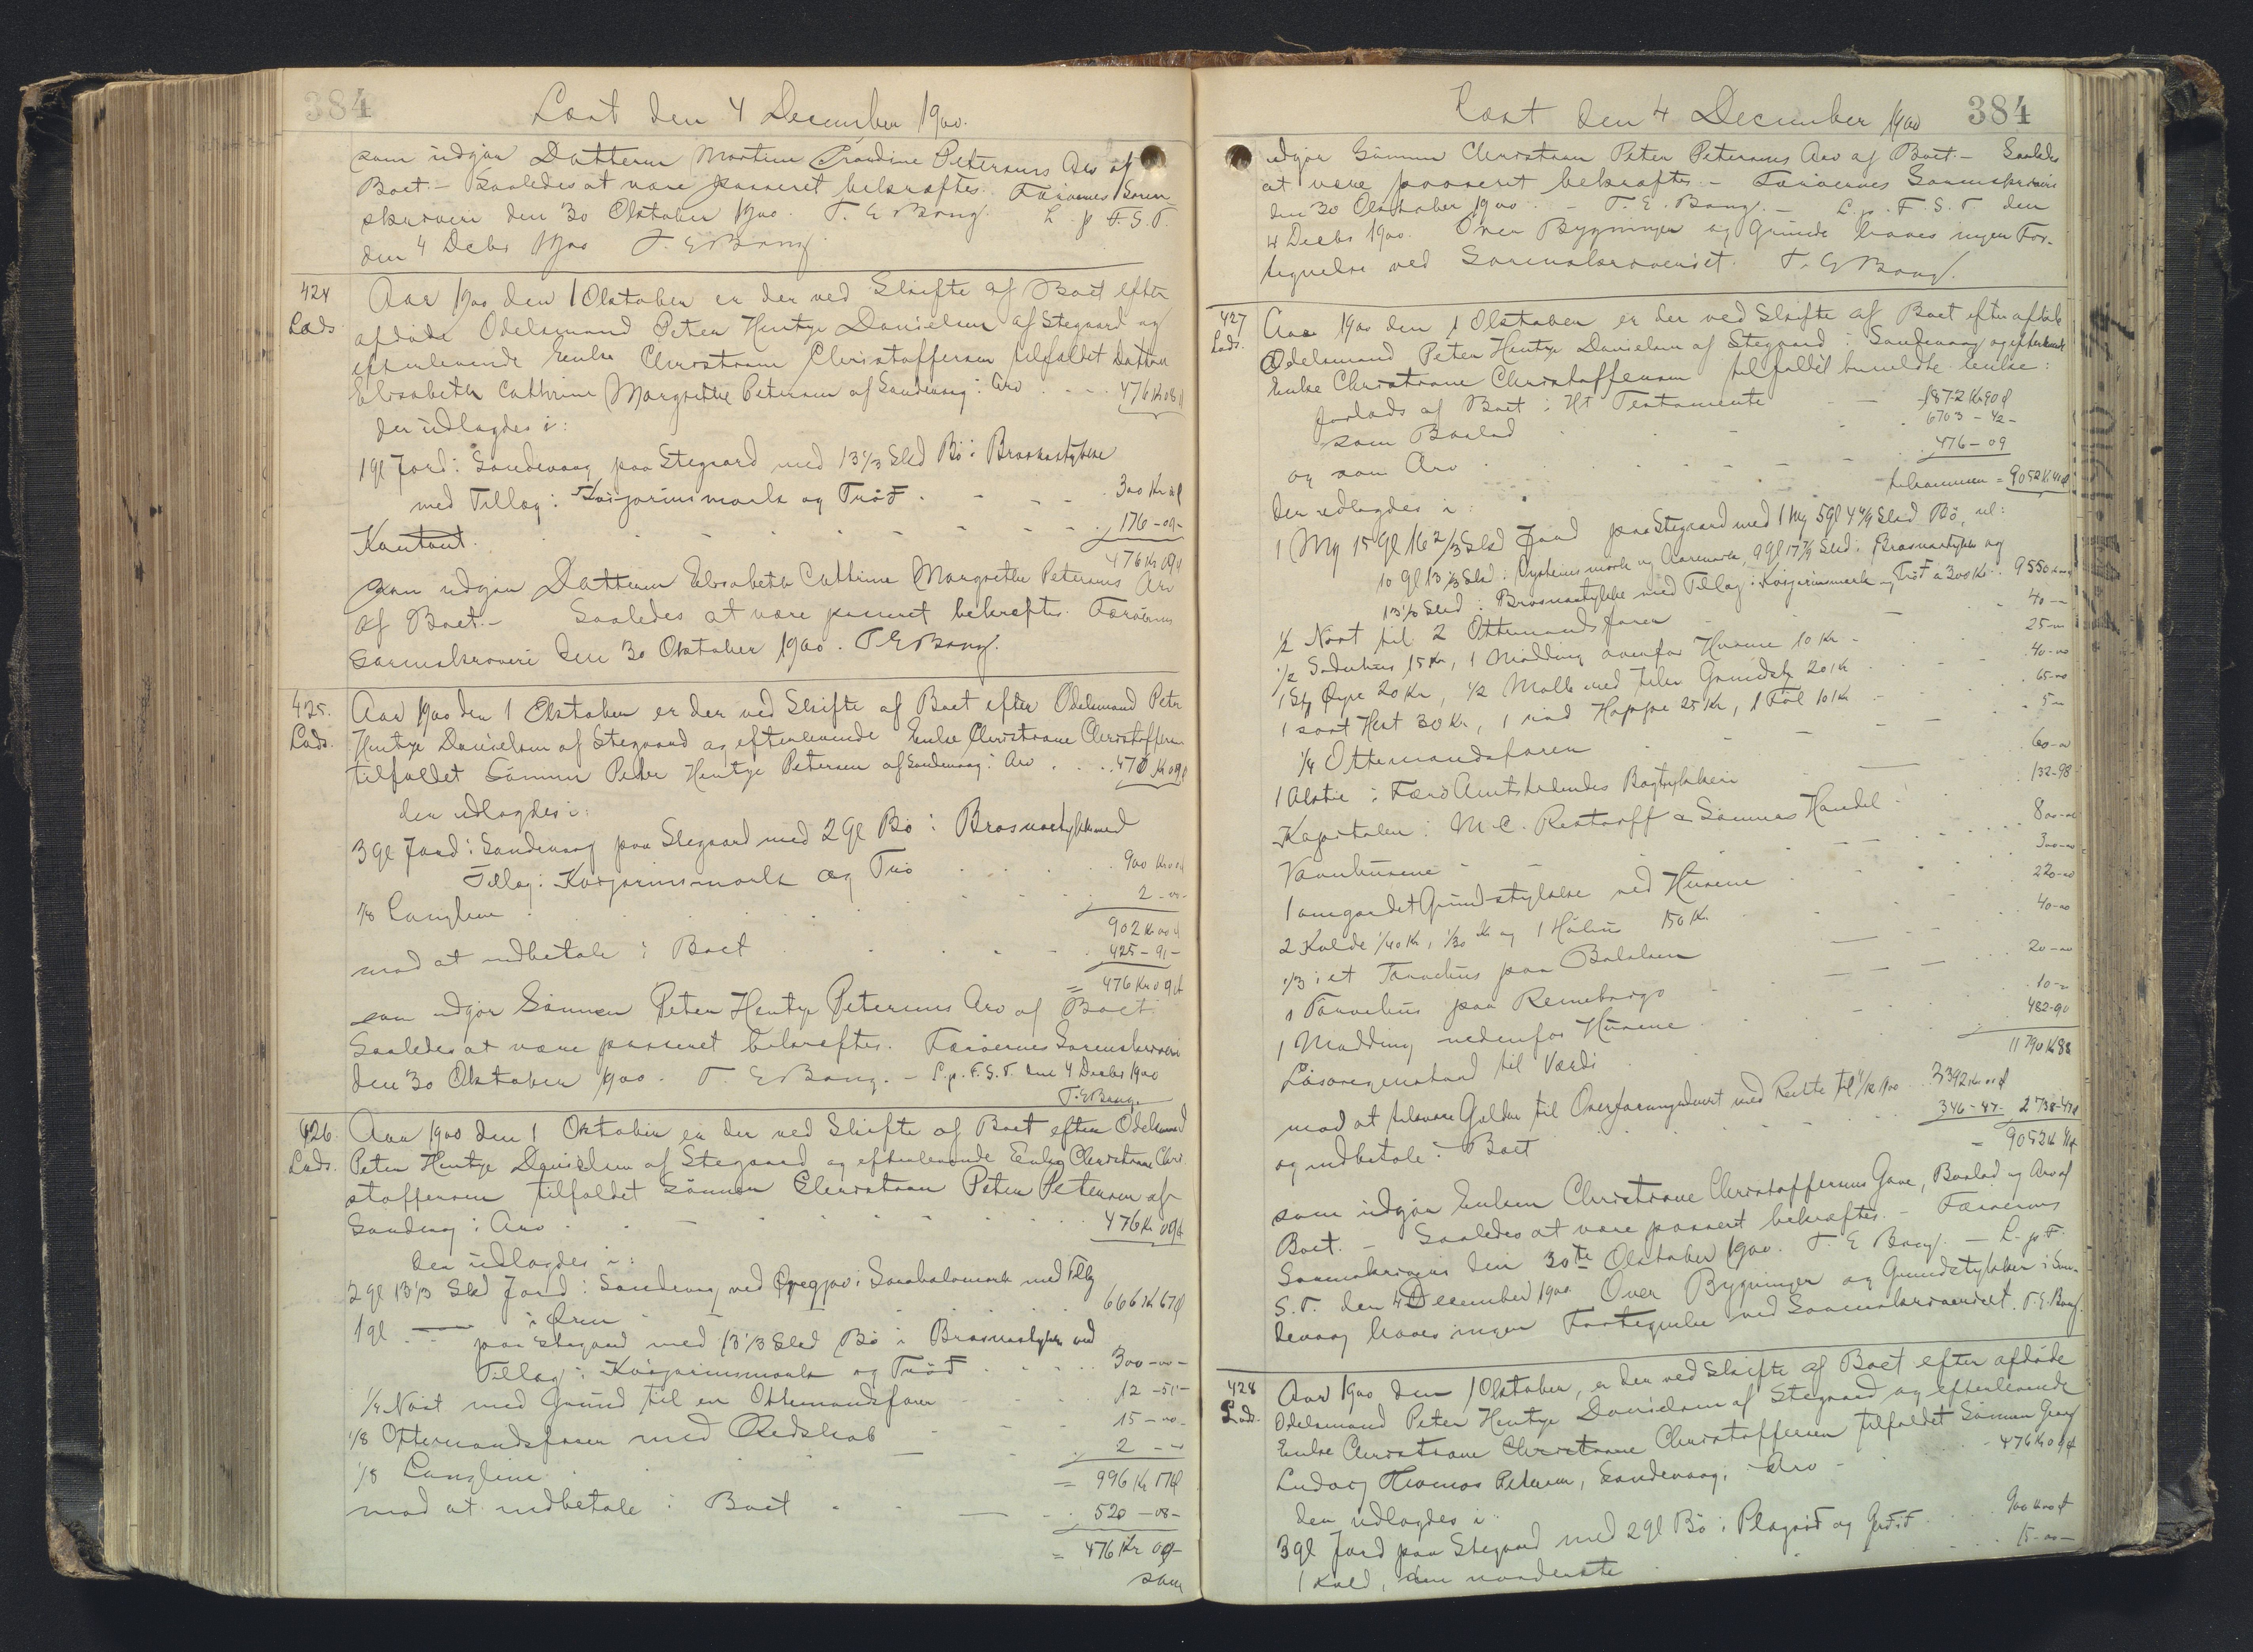 384
Læst den 4 December 1900.
som udgjør Datteren Petersens Arv af
Boet. - Saaledes at være passeret bekræftes. Færøernes Soren
skriveri den 30 Oktober 1900. T. E Bang. L. p F. S. T.
den 4 Decbr 1900 T. E Bang.
424
Lods.
Aar 1900 den 1 Oktober er der ved Skifte af Boet efter
afdøde Odelsmand Peter Hentze Danielsen af Stegaard og
efterlevende Enke Christiane Christoffersen tilfaldet Datter
Elisabeth Cathrine Margrethe Petersen af Sandevaag i Arv 476 Kr 09 Ø
der udlagdes i:
1 Gl Jord i Sandevaag paa Stegaard med 13 1/3 Skd Bø i Brasnastykke
med Tillæg i og Trøð 300 Kr
Kontant 176 - 09 -
476 Kr 09 Ø
som udgjør Datteren Elisabeth Cathrine Margrethe Petersens Arv
af Boet. - Saaledes at være passeret bekræftes. Færøernes
Sorenskriveri den 30 Oktober 1900. T. E Bang.
425.
Lods.
Aar 1900 den 1 Oktober er der ved Skifte af Boet efter Odelsmand Peter
Hentze Danielsen af Stegaard og efterlevende Enke Christiane Christoffersen
tilfaldet Sønnen Peter Hentze Petersen af Sandevaag i Arv 476 Kr 09 Ø
der udlagdes i:
3 Gl Jord i Sandevaag paa Stegaard med 2 Gl Bø i Brasnastykke med
Tillæg i og Trø 900 Kr 00 Ø
1/8 Langline 2 - 00 -
902 Kr 00 Ø
mod at indbetale i Boet 425 - 91 -
= 476 Kr 09 Ø
som udgjør Sønnen Peter Hentze Petersens Arv af Boet.
Saaledes at være passeret bekræftes. Færøernes Sorenskriveri
den 30 Oktober 1900. T. E Bang. - L. p. F. S. T. den 4 Decbr 1900
T. E Bang.
426.
Lods.
Aar 1900 den 1 Oktober er der ved Skifte af Boet efter Odelsmand
Peter Hentze Danielsen af Stegaard og efterlevende Enke Christiane Chri
stoffersen tilfaldet Sønnen Christian Peter Petersen af
Sandevaag i Arv 476 Kr 09 Ø
der udlagdes i:
2 Gl 13 1/3 Skd Jord i Sandevaag ved med Tillæg
i Ørin 666 Kr 67 Ø
1 Gl — paa Stegaard med 13 1/3 Skd Bø i Brasnastykke med
Tillæg i og Trøð 300 - 00 -
1/4 Nøst med Grund til en Ottemandsfarer 12 - 50 -
1/8 Ottemandsfarer med Redskab 15 - 00 -
1/8 Langline 2 - -
= 996 Kr 17 Ø
mod at indbetale i Boet 520 - 08 -
= 476 Kr 09 -
som
Læst den 4 December 1900 384
udgjør Sønnen Christian Peter Petersens Arv af Boet. - Saaledes
at være passeret bekræftes. - Færøernes Sorenskriveri
den 30 Oktober 1900. - T. E. Bang. - L. p. F. S. T. den
4 Decbr 1900. Over Bygninger og Grunde haves ingen For-
tegnelse ved Sorenskriveriet. T. E Bang.
427
Lods.
Aar 1900 den 1 Oktober er der ved Skifte af Boet efter afdøde
Odelsmand Peter Hentze Danielsen af Stegaard i Sandevaag og efterlevende
Enke Christiane Christoffersen tilfaldet bemeldte Enke:
forlods af Boet i Ht Testamente 1872 Kr 90 Ø
som Boslod 6703 - 42 -
og som Arv 476 - 09
tilsammen = 9052 Kr 41 Ø
der udlagdes i:
1 Mg 15 Gl 16 2/3 Skd Jord paa Stegaard med 1 Mg 5 Gl 4 4/9 Skd Bø, nl:
10 Gl 13 1/3 Skd i og 9 Gl 17 7/9 Skd i Brasnastykke og
13 1/3 Skd i Brasnastykke med Tillæg i og Trøð a 300 Kr 9550 Kr
1/2 Nøst til 2 Ottemandsfarer 40 -
1/2 15 Kr, 1 Mødding ovenfor Husene 10 Kr 25 -
1 Stk Øxe 20 Kr, 1/2 Mølle med Grundstk 20 Kr 40 - 00
1 sort Hest 30 Kr, 1 rød Hoppe 25 Kr, 1 Føl 10 Kr 65 - 00
1/4 Ottemandsfarer 5 -
1 Aktie i Færø Amtstidendes Bogtrykkeri 60 - 00
Kapitalen i M. C. Restorff & Sønners Handel 132 - 98
Vaanhusene 800 - 00
1 omgærdet Grundstykke ved Husene 300 - 00
2 Kulde 1/40 Kr, 1/30 Kr og 1 Høhus 150 Kr. 220 - 00
1/3 i et Tørvehus paa 40 - 00
1 Tørvehus paa 20 - 00
1 Mødding nedenfor Husene 10 -
Løsøregenstand til Værdi 482 - 90
11790 Kr 88
mod at tilsvare Gælden til Overformynderiet med Rente til 11/12 1900 2392 Kr 00 Ø
og indbetale i Boet 346 - 47 - 2738 - 47 Ø
= 9052 Kr 41 Ø
som udgjør Enken Christiane Christoffersens Gave, Boslod og Arv af
Boet. - Saaledes at være passeret bekræftes. - Færøernes
Sorenskriveri den 30te Oktober 1900. T. E Bang. - L. p F.
S. T. den 4 December 1900. Over Bygninger og Grundstykker i San-
devaag haves ingen Fortegnelse ved Sorenskriveriet. T. E. Bang.
428
Lods.
Aar 1900 den 1 Oktober, er der ved Skifte af Boet efter afdøde
Odelsmand Peter Hentze Danielsen af Stegaard og efterlevende
Enke Christiane Christiane Christoffersen tilfaldet Sønnen
Ludvig Thomas Petersen, Sandevaag, i Arv 476 Kr 09 Ø
der udlagdes i:
3 Gl Jord paa Stegaard med 2 Gl Bø i og 900 Kr 00 Ø
1 Kuld, den nordenste 15 - 00 -